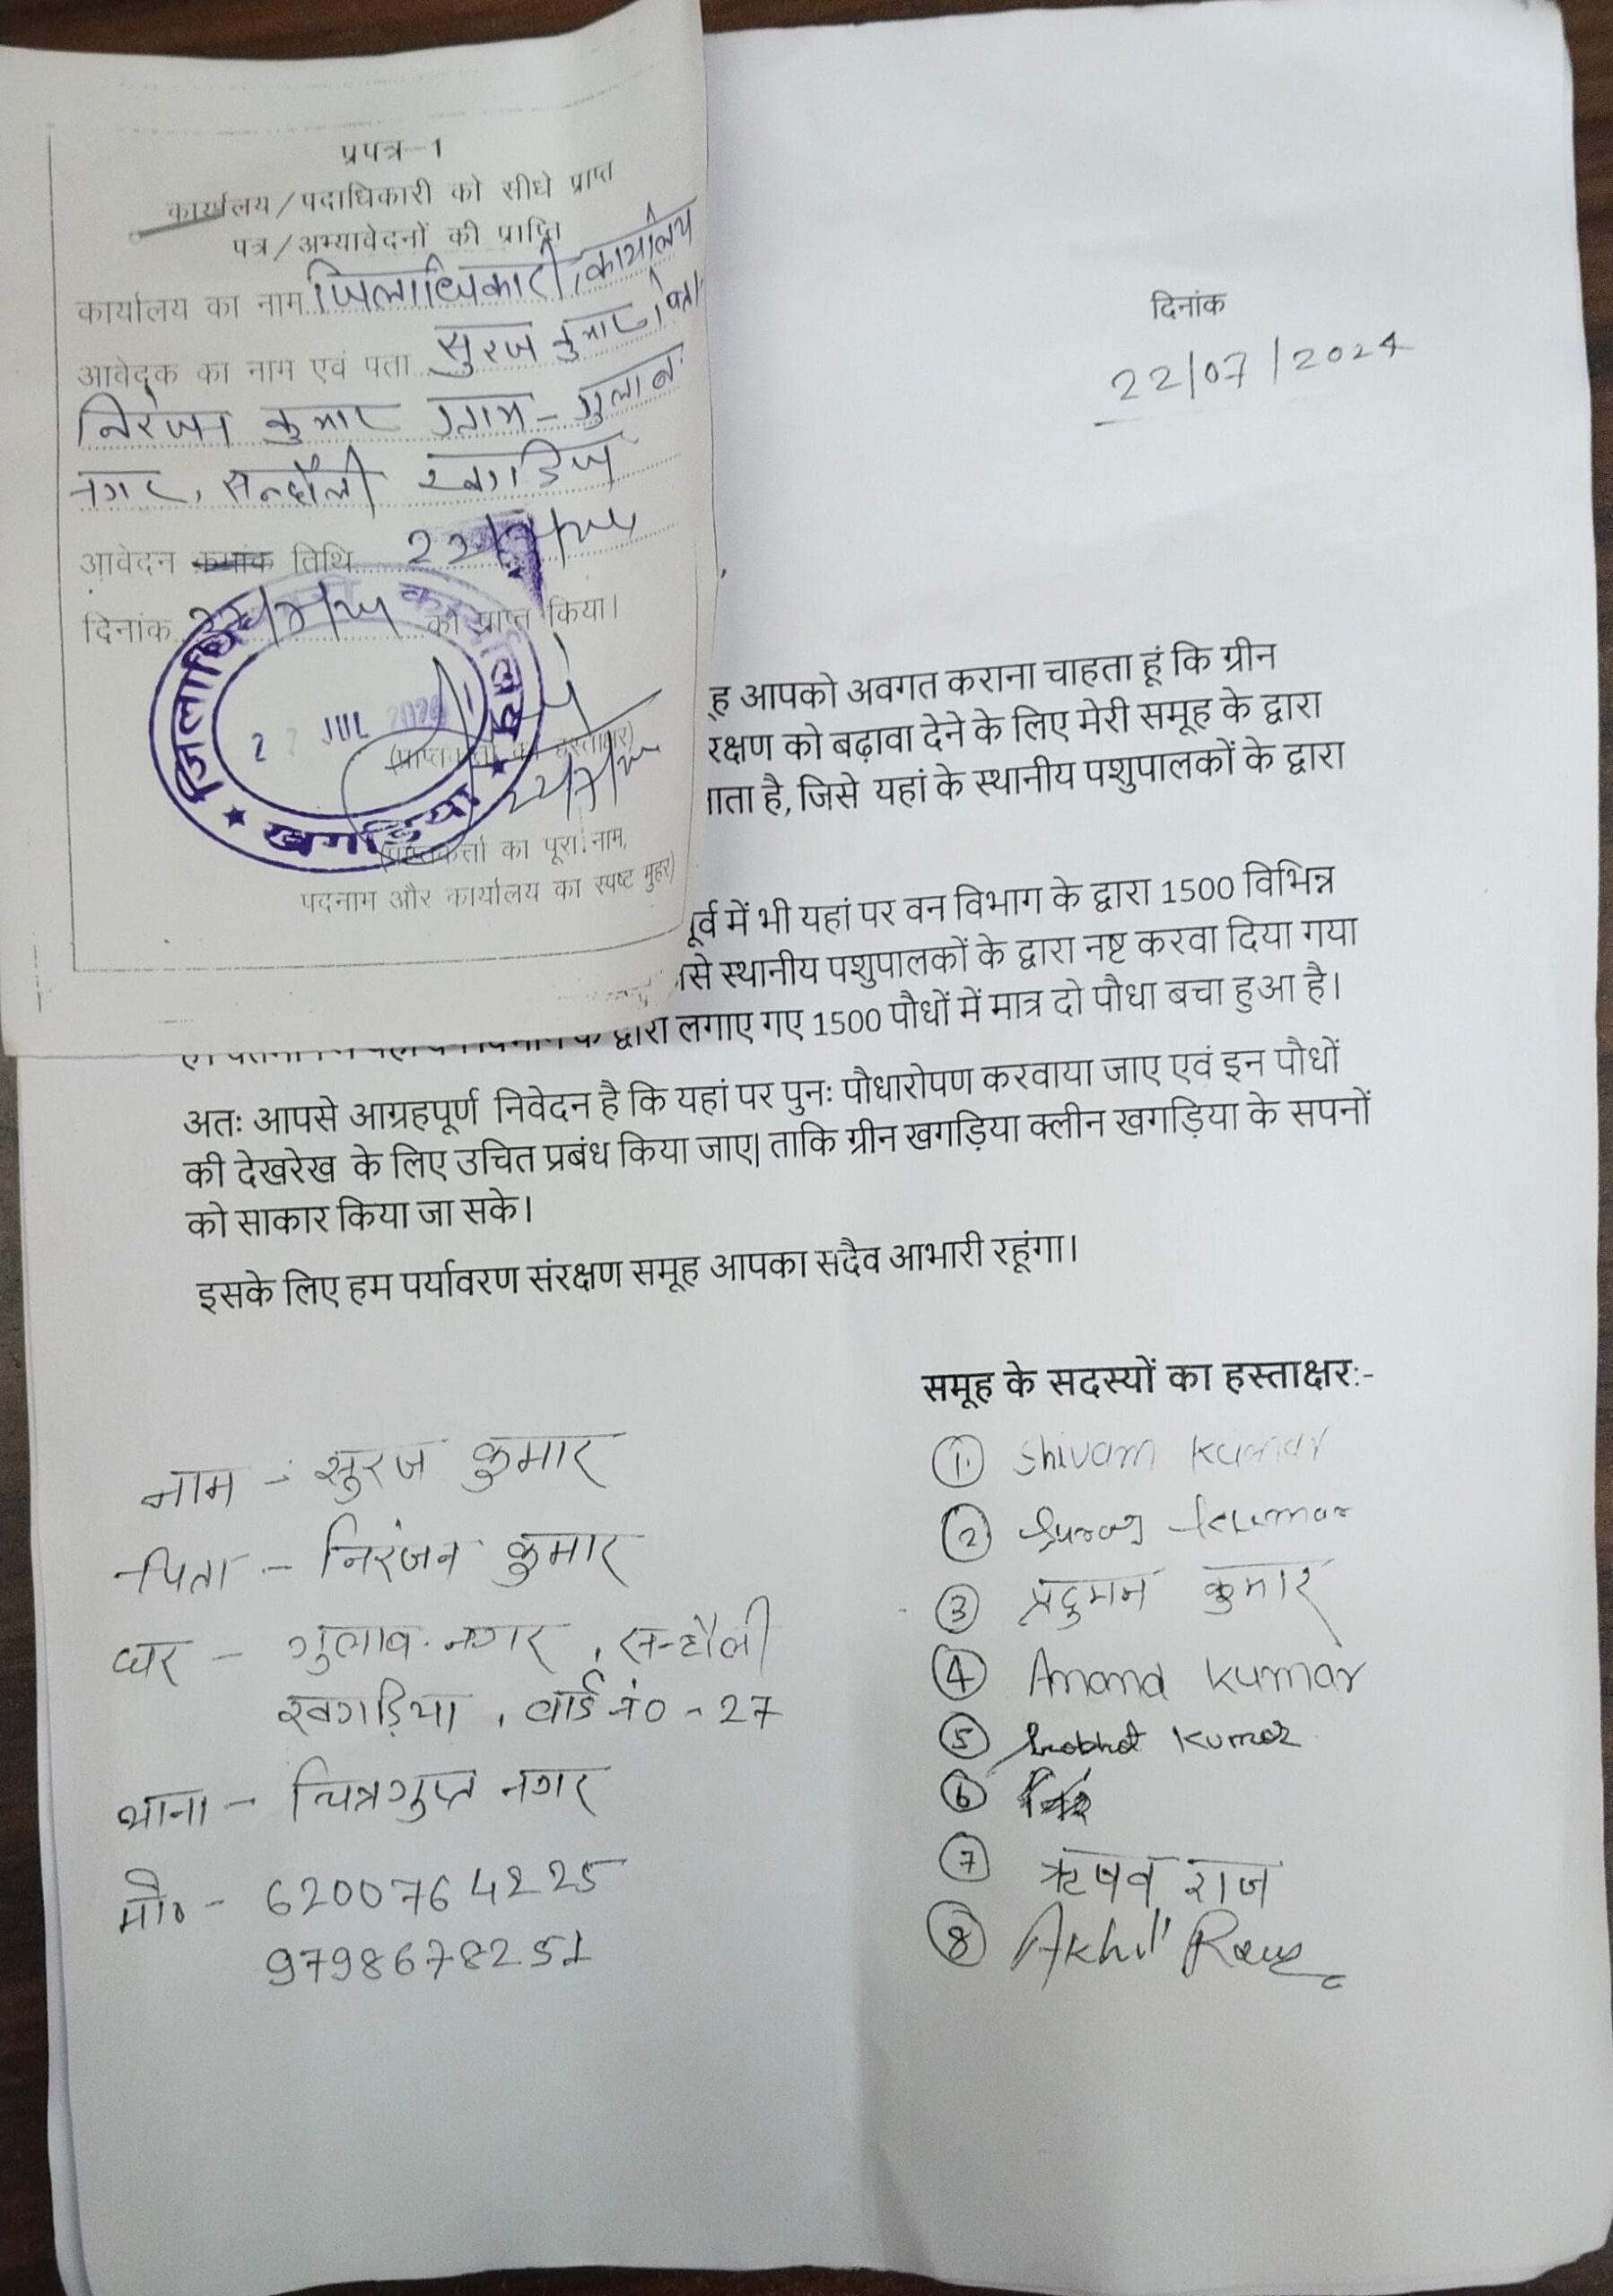 प्रपत्र-1
कार्यालय/पदाधिकारी को सीधे प्राप्त
पत्र/अभ्यावेदनों की प्राप्ति
कार्यालय का नाम जिलाधिकारी, कार्यालय
आवेदक का नाम एवं पता सुरज कुमार,
निरंजन कुमार ग्राम - गुलाब
नगर, सन्हौली खगड़िया
आवेदन क्रमांक तिथि
दिनांक को प्राप्त किया।
(प्राप्तकर्ता का हस्ताक्षर)
(प्राप्तकर्त्ता का पूरा नाम,
पदनाम और कार्यालय का स्पष्ट मुहर)
खगड़िया
दिनांक
22/07/2024
ह आपको अवगत कराना चाहता हूं कि ग्रीन
रक्षण को बढ़ावा देने के लिए मेरी समूह के द्वारा
ाता है, जिसे यहां के स्थानीय पशुपालकों के द्वारा
पूर्व में भी यहां पर वन विभाग के द्वारा 1500 विभिन्न
से स्थानीय पशुपालकों के द्वारा नष्ट करवा दिया गया
के द्वारा लगाए गए 1500 पौधों में मात्र दो पौधा बचा हुआ है।
अतः आपसे आग्रहपूर्ण निवेदन है कि यहां पर पुनः पौधारोपण करवाया जाए एवं इन पौधों
की देखरेख के लिए उचित प्रबंध किया जाए| ताकि ग्रीन खगड़िया क्लीन खगड़िया के सपनों
को साकार किया जा सके।
इसके लिए हम पर्यावरण संरक्षण समूह आपका सदैव आभारी रहूंगा।
नाम - सुरज कुमार
पिता - निरंजन कुमार
घर - गुलाब नगर, सन्हौली
खगड़िया, वार्ड नं० - 27
थाना - चित्रगुप्त नगर
मो० - 6200764225
9798678251
समूह के सदस्यों का हस्ताक्षर:-
① Shivam Kumar
② Suraj Kumar
③ प्रदुमन कुमार
④ Anand Kumar
⑤ Kumar
⑥
⑦ ऋषव राज
⑧ Akhil